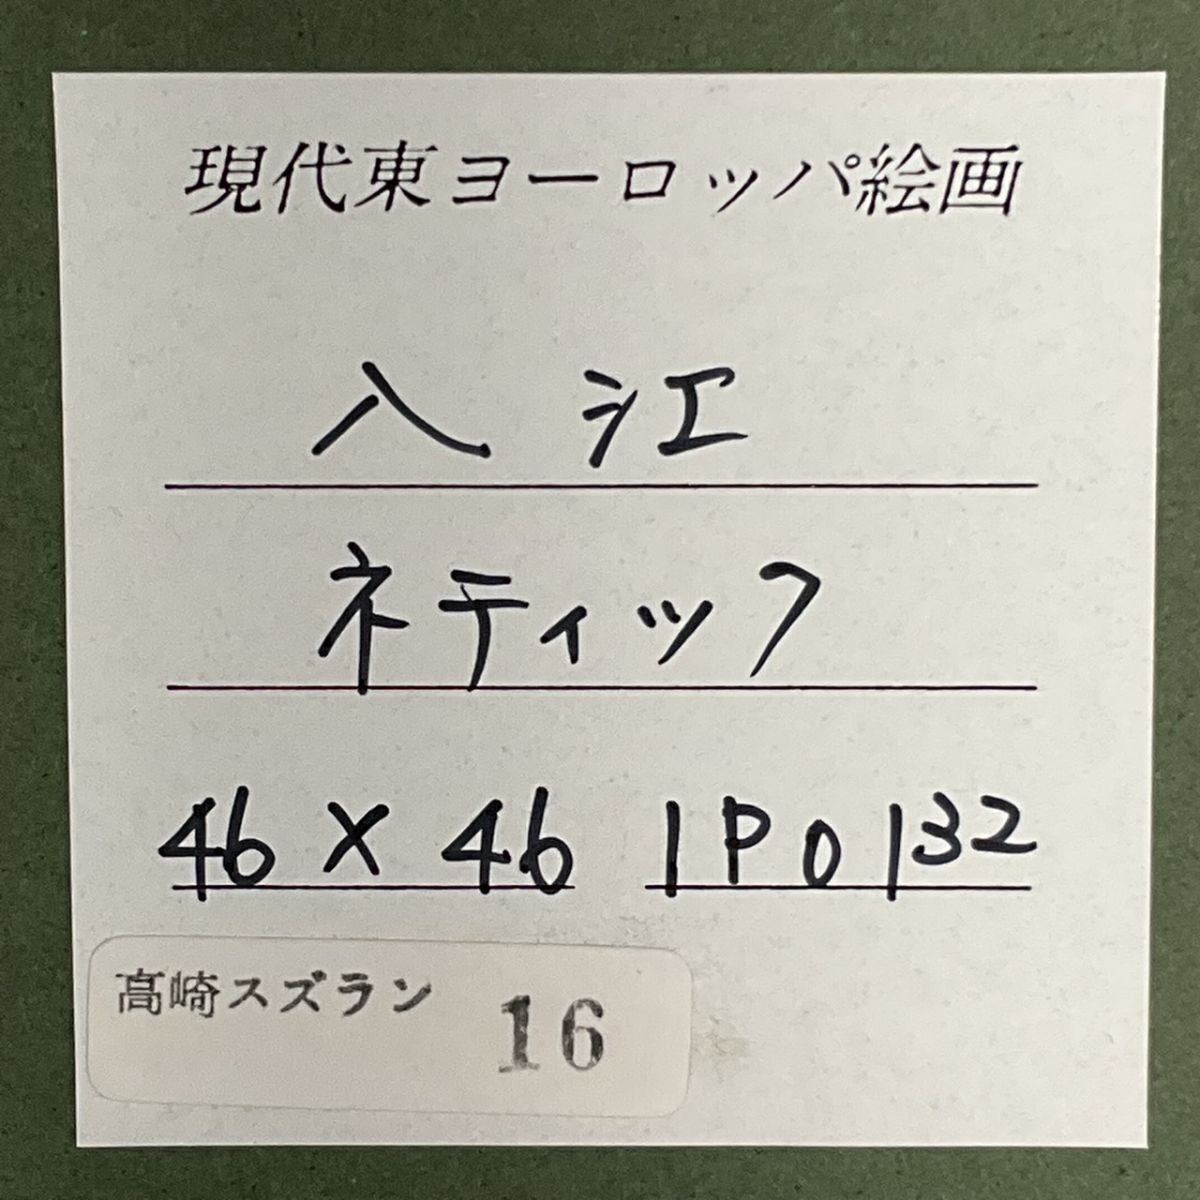 現代東ヨーロッパ絵画
入江
ネティック
46 × 46 1P0132
高崎スズラン 16